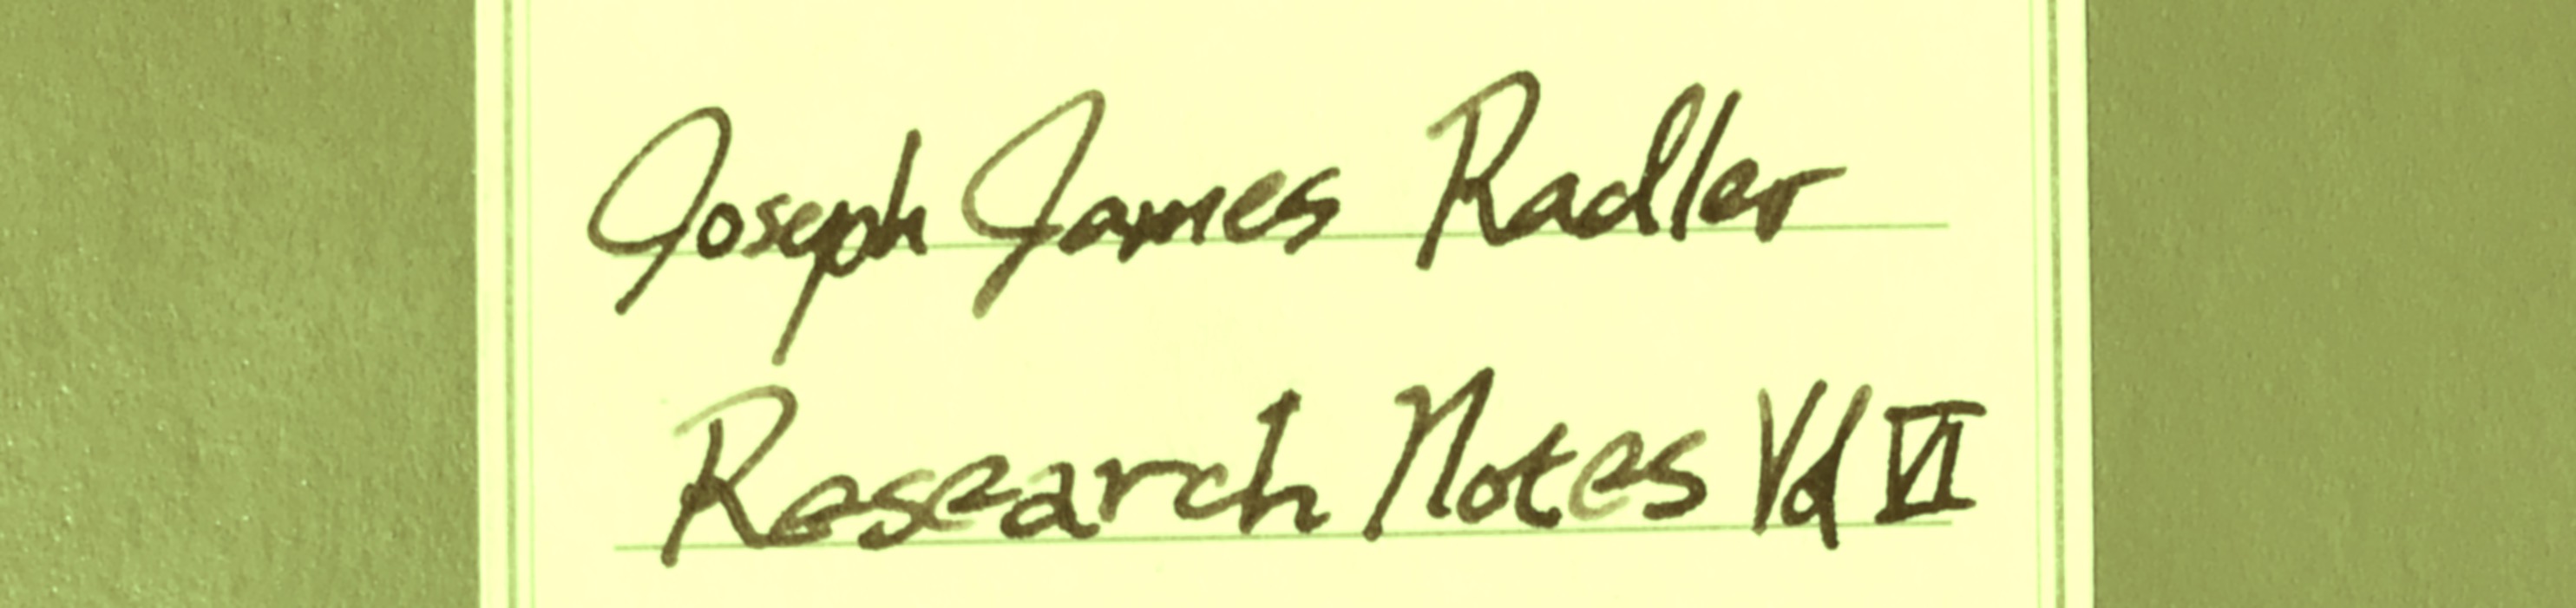 Joseph James Radler
Research Notes Vol VI